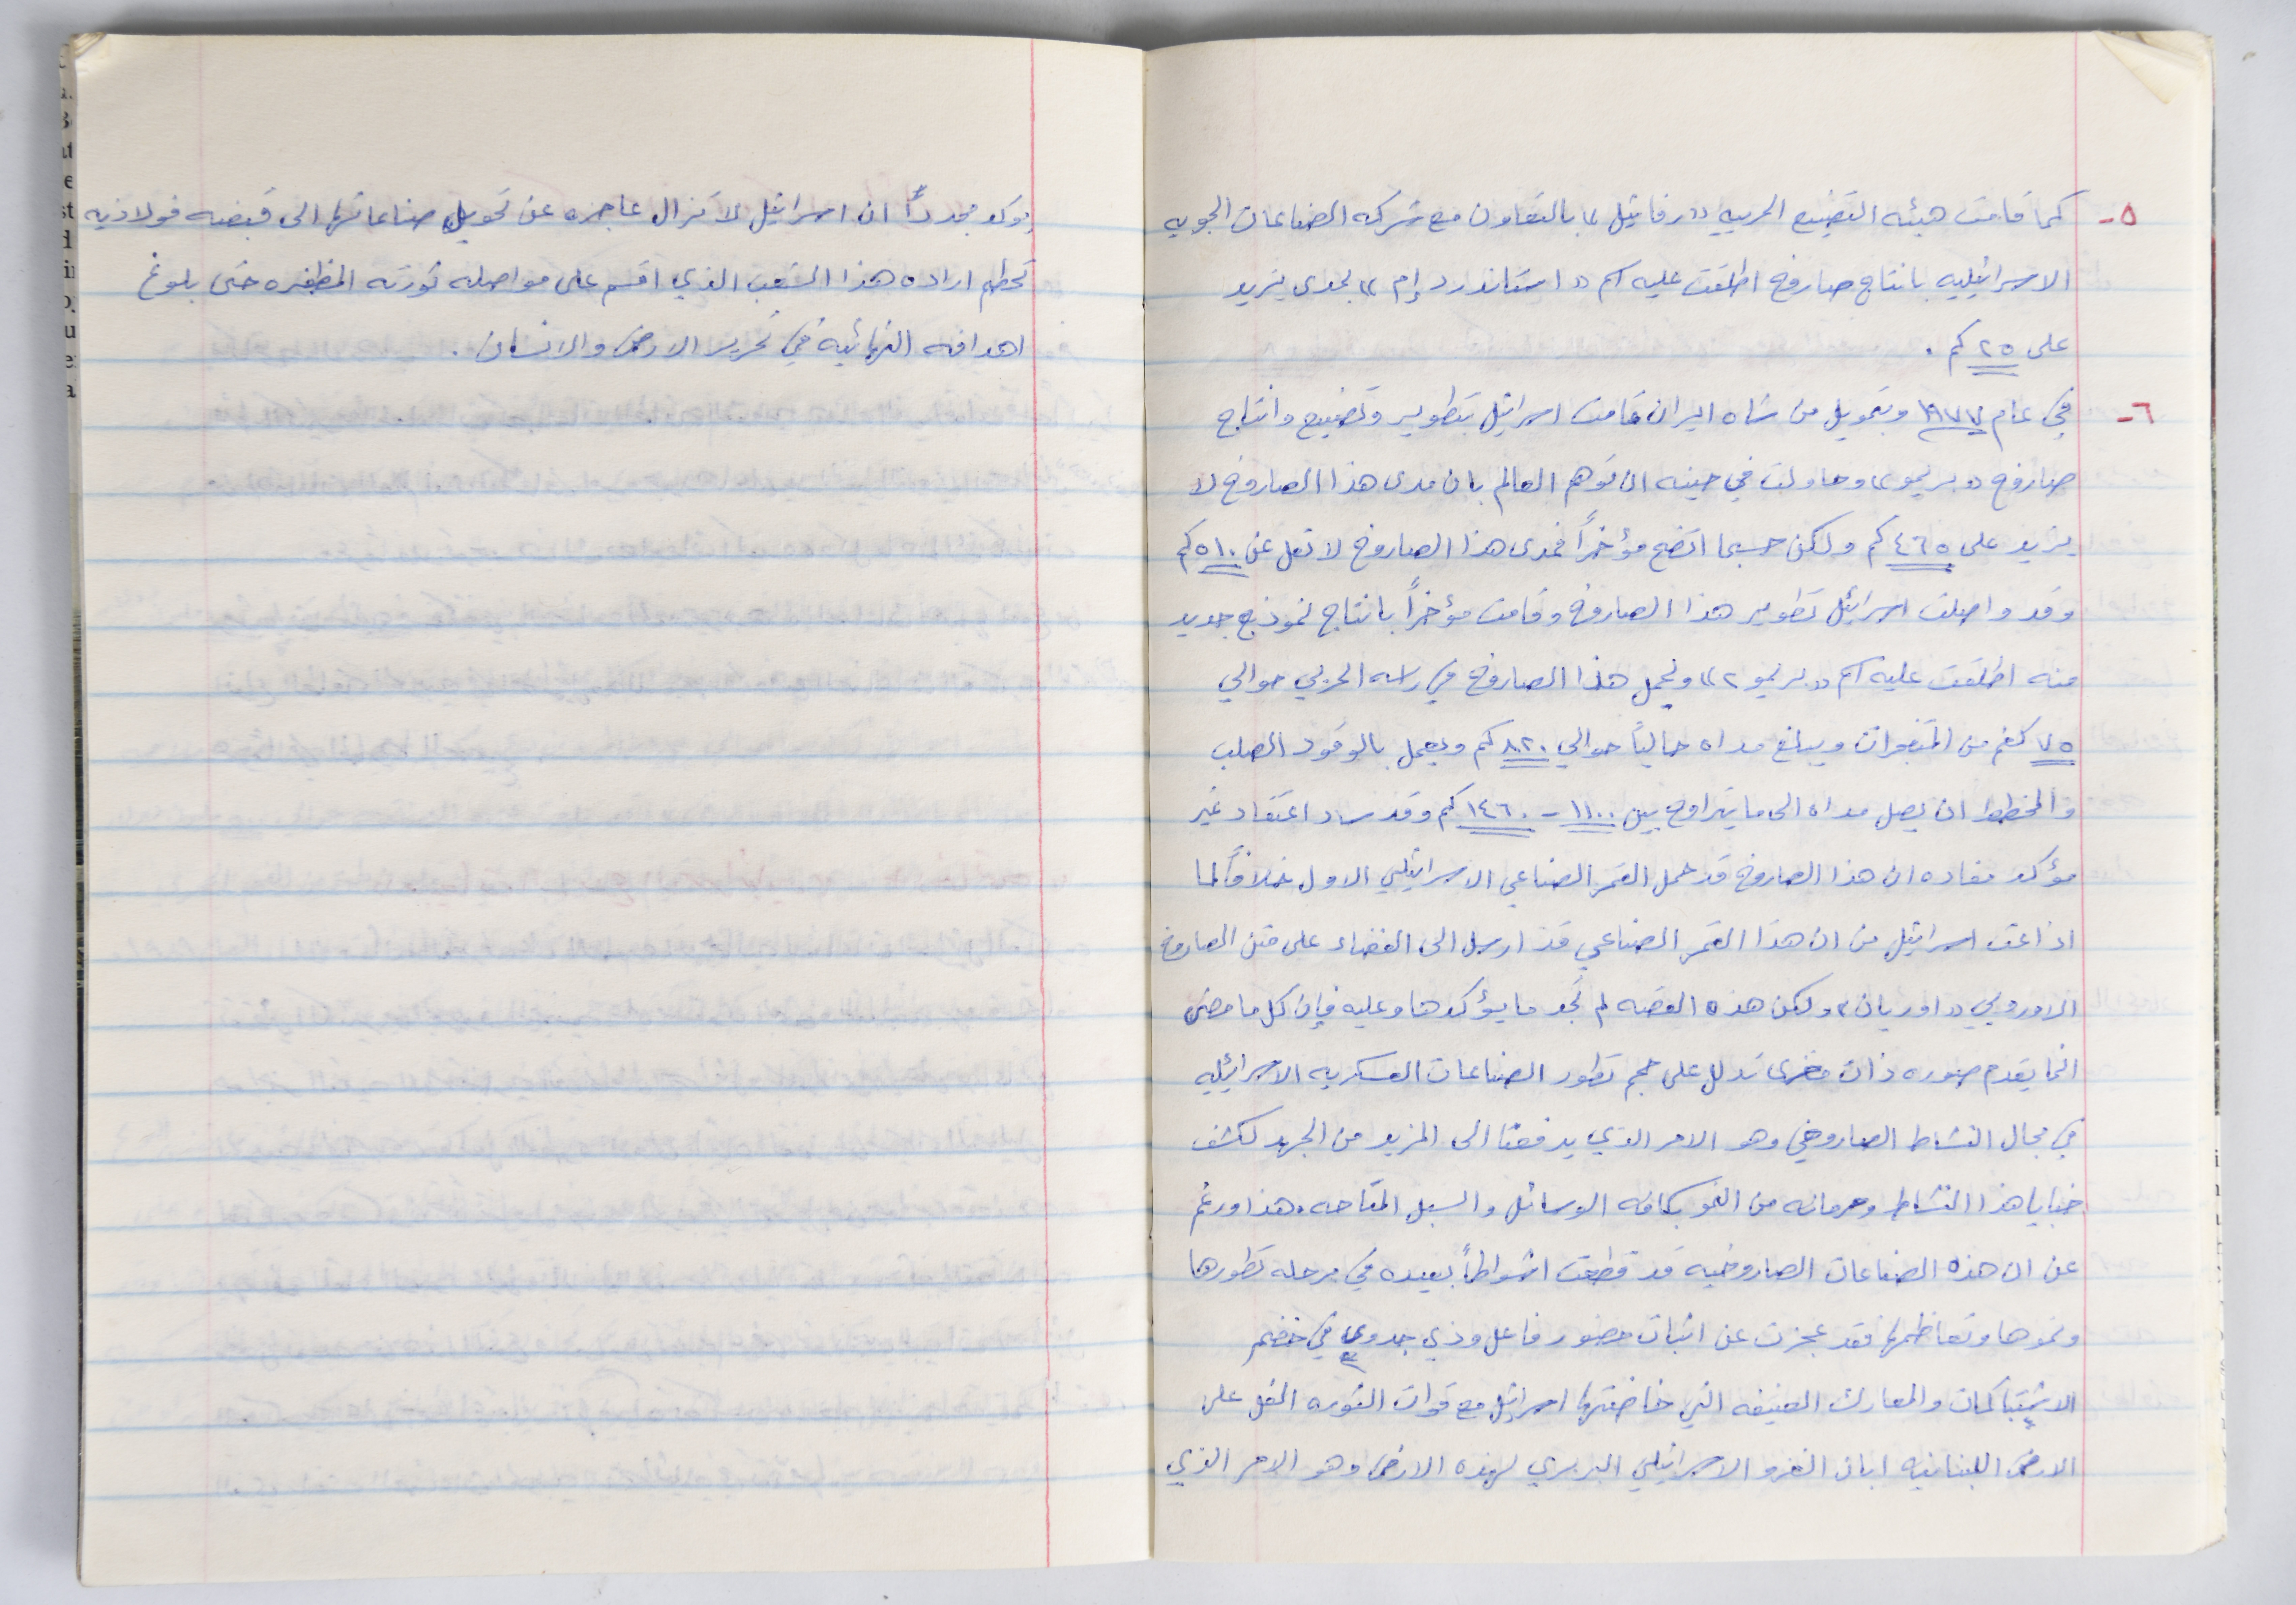 ٥- كما قامت هيئه التصنيع الحربيه «رفائيل» بالتعاون مع شركه الصناعات الجويه
الاسرائيليه بانتاج صاروخ اطلقت عليه اسم « استاندرد إم » بمدى يزيد
على ٢٥ كم .
٦- في عام ١٩٧٧ وبتمويل من شاه ايران قامت اسرائيل بتطوير وتصنيع وانتاج
صاروخ « بريحو » وحاولت في حينه ان توهم العالم بان مدى هذا الصاروخ لا
يزيد على ٤٦٥ كم ولكن حسبما اتضح مؤخراً فمدى هذا الصاروخ لا تقل عن ٥١٠ كم
وقد واصلت اسرائيل تطوير هذا الصاروخ وقامت مؤخراً بانتاج نموذج جديد
منه اطلقت عليه اسم « بريحو ٢ » ويحمل هذا الصاروخ في راسه الحربي حوالي
٧٥ كغم من المتفجرات ويبلغ مداه حالياً حوالي ٨٢٠ كم ويعمل بالوقود الصلب
والمخطط ان يصل مداه الى ما يتراوح بين ١١٠٠ - ١٤٦٠ كم وقد ساد اعتقاد غير
مؤكد مفاده ان هذا الصاروخ قد حمل القمر الصناعي الاسرائيلي الاول خلافاً لما
اذاعت اسرائيل من ان هذا القمر الصناعي قد ارسل الى الفضاء على متن الصاروخ
الاوروبي « اوريان » ولكن هذه القصه لم تجد ما يؤكدها وعليه فإن كل ما مضى
انما يقدم صوره ذات مغزى تدلل على حجم تطور الصناعات العسكريه الاسرائيليه
في مجال النشاط الصاروخي وهو الامر الذي يدفعنا الى المزيد من الجهد لكشف
خبايا هذا النشاط وحرمانه من النمو بكافه الوسائل والسبل المتاحه . هذا ورغم
عن ان هذه الصناعات الصاروخيه قد قطعت اشواطاً بعيده في مرحله تطورها
ونموها وتعاظمها فقد عجزت عن اثبات حضور فاعل وذي جدوى في خضم
الاشتباكات والمعارك العنيفه التي خاضتها اسرائيل مع قوات الثوره الفل على
الارض اللبنانيه ابان الغزو الاسرائيلي البربري لهذه الارض وهو الامر الذي
يؤكد مجدداً ان اسرائيل لا تزال عاجزه عن تحويل صناعاتها الى قبضه فولاذيه
تحطم اراده هذا الشعب الذي اقسم على مواصله ثورته المظفره حتى بلوغ
اهدافه النهائيه في تحرير الارض والانسان .